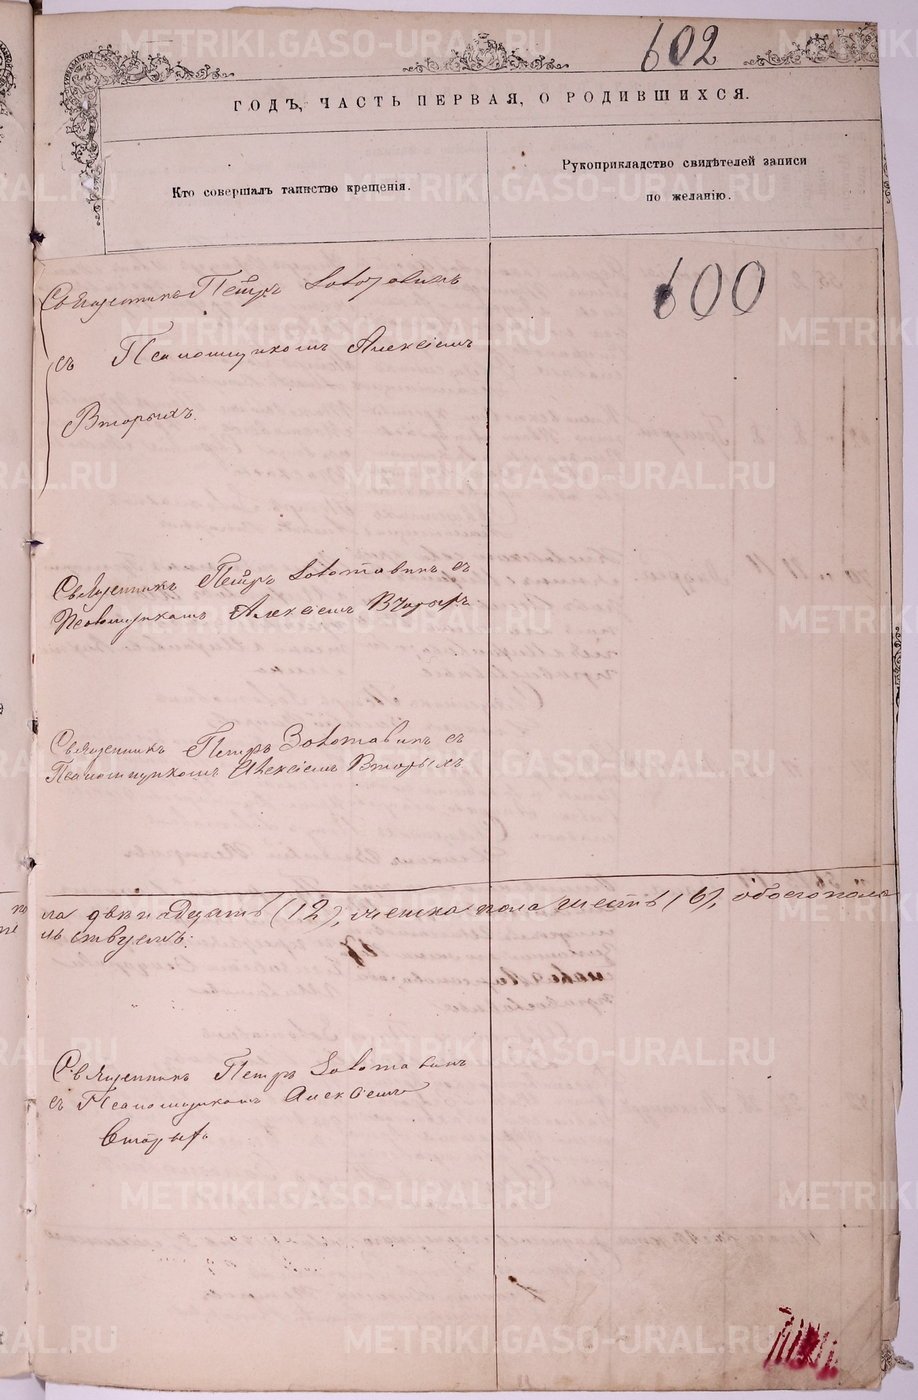 602
ГОДЪ, ЧАСТЬ ПЕРВАЯ, О РОДИВШИХСЯ.
Кто совершалъ таинство крещенія.
Рукоприкладство свидѣтелей записи
по желанію.
600
Священникъ Петръ Золотавинъ
съ Псаломщикомъ Алексіемъ
Вторыхъ.
Священникъ Петръ Золотавинъ съ
Псаломщикомъ Алексіемъ Вторыхъ
Священникъ Петръ Золотавинъ съ
Псаломщикомъ Алексіемъ Вторыхъ
ла двѣнадцать (12), женска пола шесть (6), обоего пола
ствуемъ:
Священникъ Петръ Золотавинъ
съ Псаломщикомъ Алексіемъ
Вторыхъ
METRIKI.GASO-URAL.RU